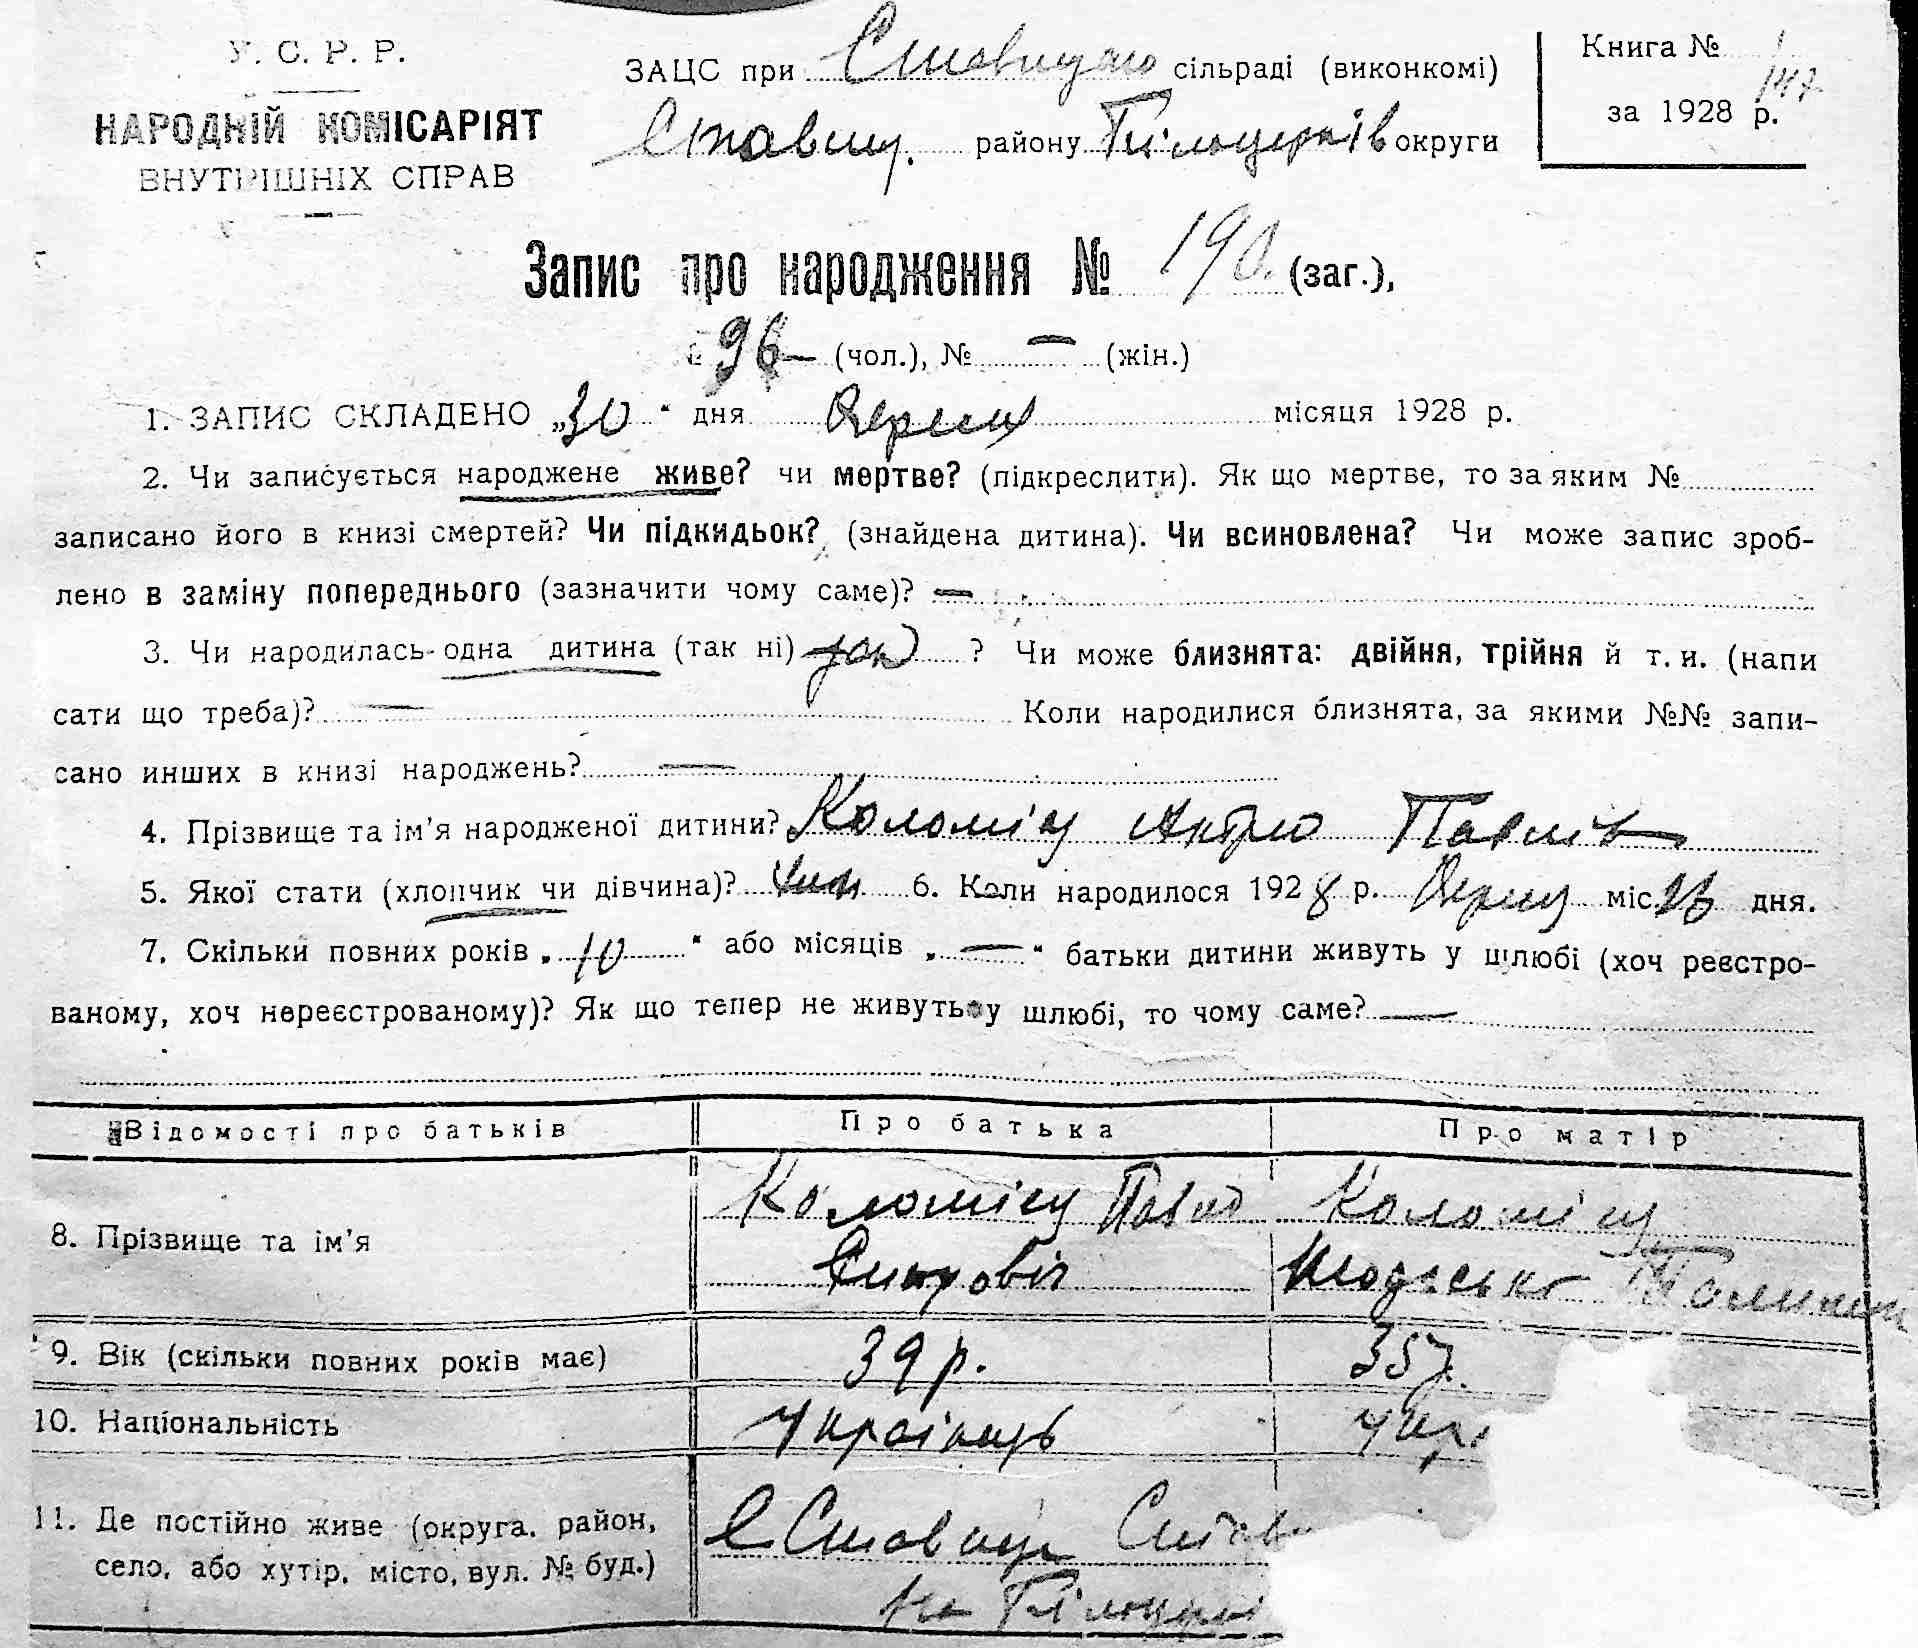 У. С. Р. Р.
НАРОДНІЙ КОМІСАРІЯТ
ВНУТРІШНІХ СПРАВ
ЗАЦС при сільраді (виконкомі)
Ставищ. району Білоцерків округи
Книга № 1
147
за 1928 р.
Запис про народження № 190 (заг.),
96 — (чол.), № — (жін.)
1. ЗАПИС СКЛАДЕНО „30" дня Вересня місяця 1928 р.
2. Чи записується народжене живе? чи мертве? (підкреслити). Як що мертве, то за яким №
записано його в книзі смертей? Чи підкидьок? (знайдена дитина). Чи всиновлена? Чи може запис зроб-
лено в заміну попереднього (зазначити чому саме)? —
3. Чи народилась одна дитина (так ні) так ? Чи може близнята: двійня, трійня й т. и. (напи
сати що треба)? — Коли народилися близнята, за якими №№ запи-
сано инших в книзі народжень? —
4. Прізвище та ім'я народженої дитини? Коломієц Павлів
5. Якої стати (хлопчик чи дівчина)? 6. Коли народилося 1928 р. міс дня.
7. Скільки повних років „10" або місяців „—" батьки дитини живуть у шлюбі (хоч реєстро-
ваному, хоч нереєстрованому)? Як що тепер не живуть у шлюбі, то чому саме? —
Відомості про батьків Про батька Про матір
8. Прізвище та ім'я Коломієц Павло Коломієц
9. Вік (скільки повних років має) 39 р. 35 р.
10. Національність Українець Укр
11. Де постійно живе (округа, район,
село, або хутір, місто, вул. № буд.)
с Ставище Став
на Білоцерків